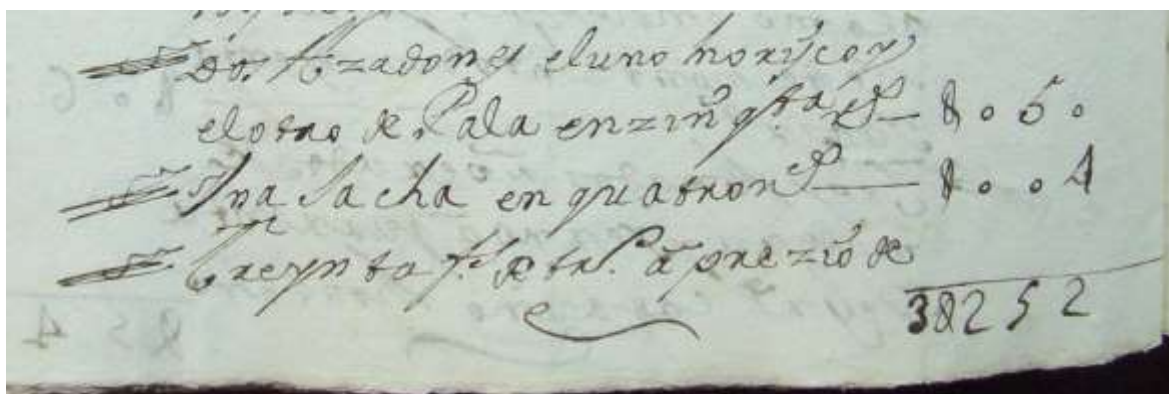 Dos Azadones el uno morisco y
el otro de Pala en zinqta Rs — 8 o 5 o
Una hacha en quatro Rs — 8 o o 4
Treynta fs de trº a prezio de
38252